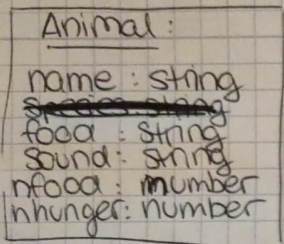 Animal:
name: string
food: string
sound: string
nfood: number
nhunger: number